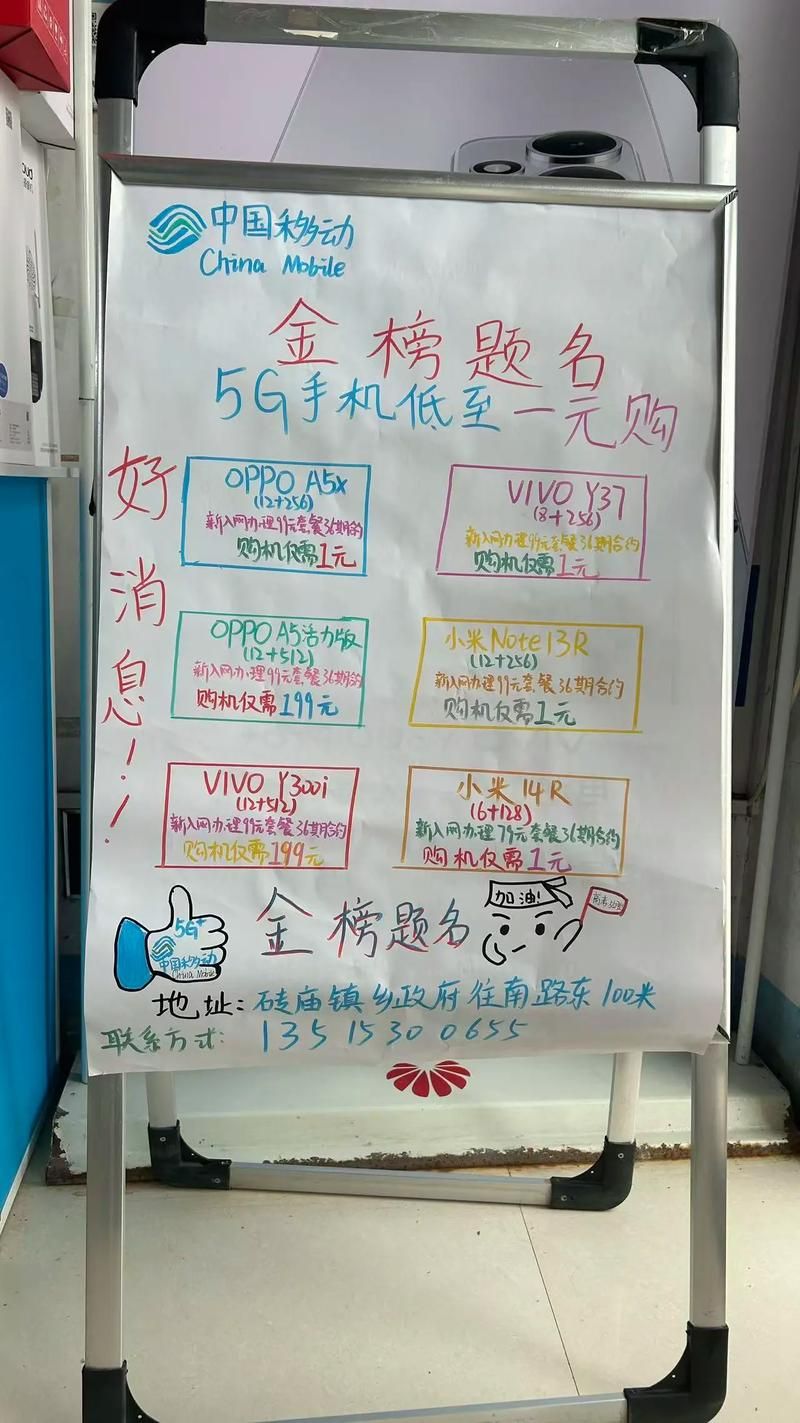 中国移动
China Mobile
金榜题名
5G手机低至一元购
好消息!!
OPPO A5x
(12+256)
新入网办理99元套餐36期合约
购机仅需1元
VIVO Y37
(8+256)
新入网办理99元套餐36期合约
购机仅需1元
OPPO A5活力版
(12+512)
新入网办理99元套餐36期合约
购机仅需199元
小米Note13R
(12+256)
新入网办理99元套餐36期合约
购机仅需1元
VIVO Y300i
(12+512)
新入网办理99元套餐36期合约
购机仅需199元
小米14R
(6+128)
新入网办理79元套餐36期合约
购机仅需1元
5G+
中国移动
China Mobile
金榜题名
加油!
地址:砖庙镇乡政府往南路东100米
联系方式:13515300655